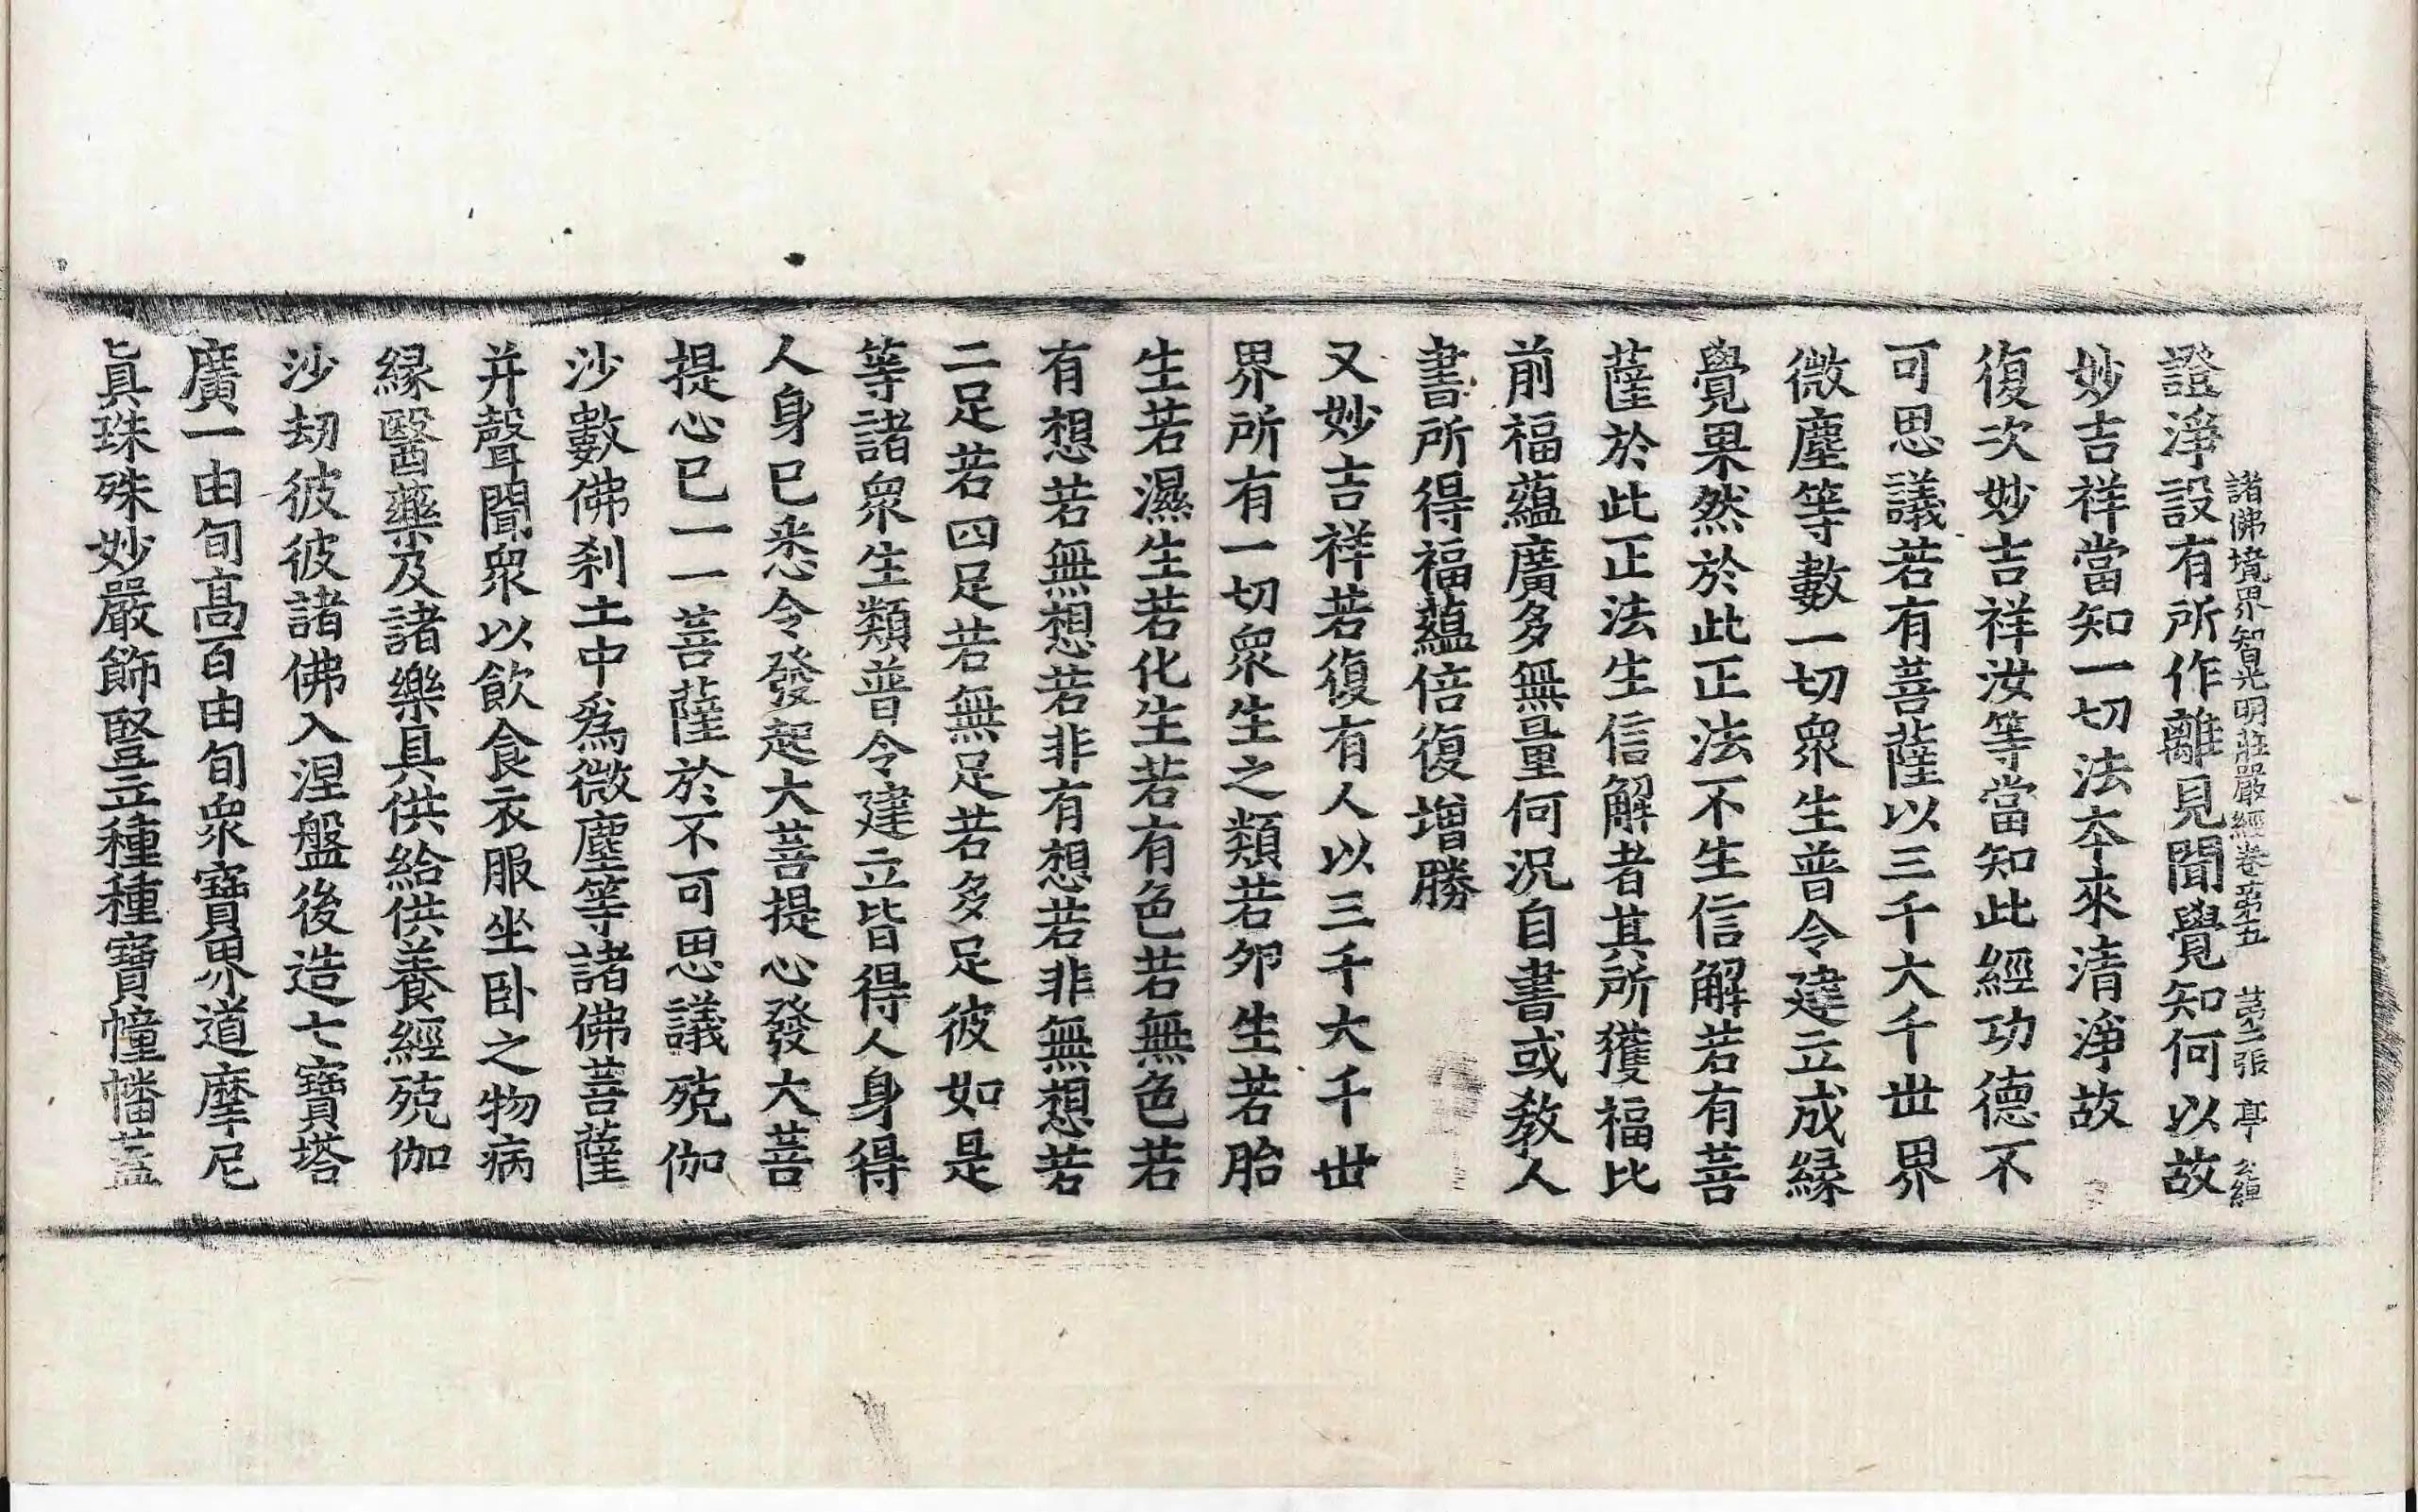 諸佛境界智光明莊嚴經卷第五 張 亭
證淨設有所作離見聞覺知何以故
妙吉祥當知一切法夲來清淨故
復次妙吉祥汝等當知此經功德不
可思議若有菩薩以三千大千世界
微塵等數一切衆生普令建立成緣
覺果然於此正法不生信解若有菩
薩於此正法生信解者其所獲福比
前福蘊廣多無量何況自書或教人
書所得福蘊倍復增勝
又妙吉祥若復有人以三千大千世
界所有一切衆生之類若卵生若胎
生若濕生若化生若有色若無色若
有想若無想若非有想若非無想若
二足若四足若無足若多足彼如是
等諸衆生類普令建立皆得人身得
人身已悉令發起大菩提心發大菩
提心已一一菩薩於不可思議殑伽
沙數佛刹土中爲微塵等諸佛菩薩
并聲聞衆以飲食衣服坐卧之物病
緣醫藥及諸樂具供給供養經殑伽
沙劫彼彼諸佛入涅盤後造七寶塔
廣一由旬高百由旬衆寶界道摩尼
眞珠殊妙嚴飾豎立種種寶幢幡蓋